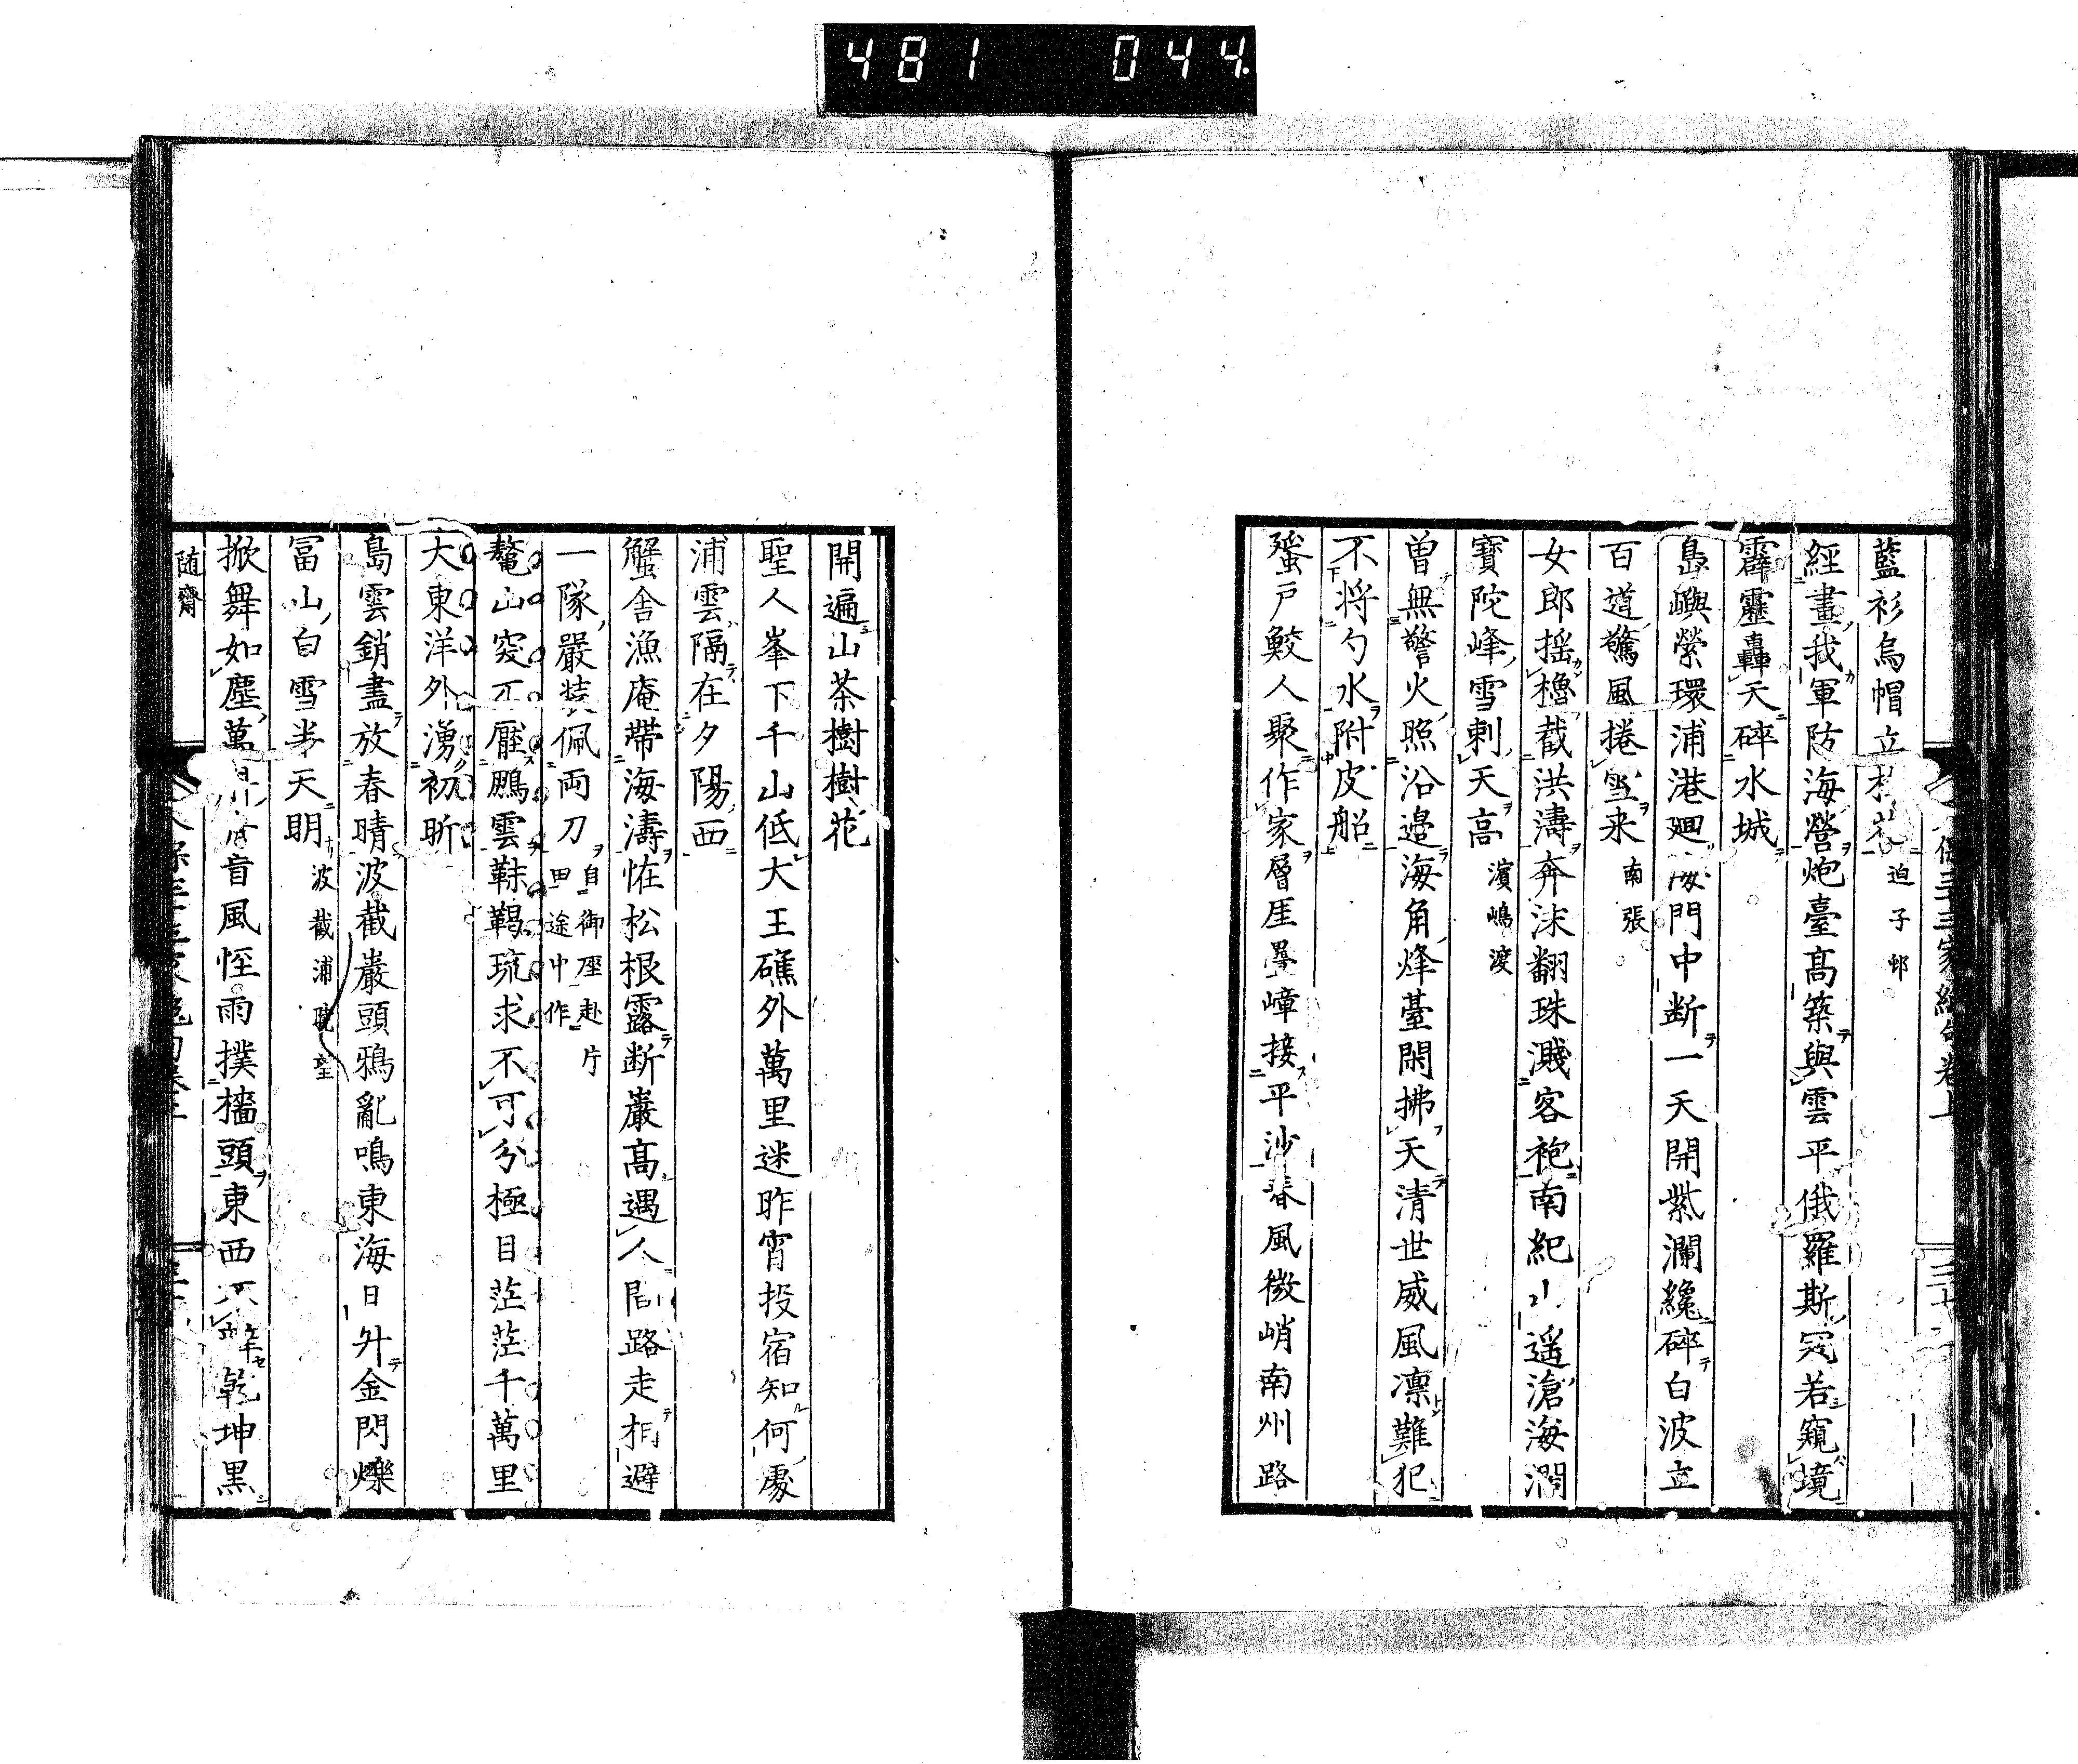 481 044
藍衫烏帽立 迫子邨
經畫我軍防海營炮臺高築與雲平俄羅斯寇若窺境
霹靂轟天碎水城
島嶼縈環浦港廻海門中断一天開紫瀾纔碎白波立
百道驚風捲雪来 南張
女郎揺櫓截洪濤奔沫翻珠濺客袍南紀山遥滄海濶
寶陀峰雪剌天高 濱嶋渡
曽無警火照沿邉海角烽臺閑拂天清世威風凛難犯
不将勺水附皮船
蜑戸鮫人聚作家層厓畳嶂接平沙春風微峭南州路
開遍山茶樹樹花
聖人峯下千山低大王礁外萬里迷昨宵投宿知何處
浦雲隔在夕陽西
蟹舎漁庵帶海濤恠松根露断巌高遇人間路走相避
一隊嚴装佩両刀 自御座赴片田途中作
鼇山突兀壓鵬雲靺鞨琉求不可分極目茫茫千萬里
大東洋外湧初昕
島雲銷盡放春晴波截巌頭鴉亂鳴東海日升金閃爍
冨山白雪半天明 波截浦眺望
掀舞如塵萬 盲風恠雨撲檣頭東西不辨乾坤黒
随齋